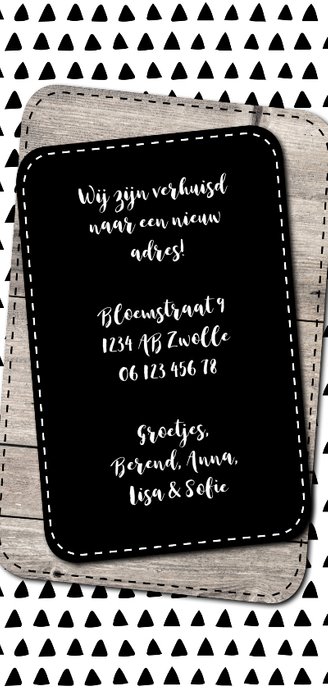 Wij zijn verhuisd
naar een nieuw
adres!
Bloemstraat 9
1234 AB Zwolle
06 123 456 78
Groetjes,
Berend, Anna,
Lisa & Sofie